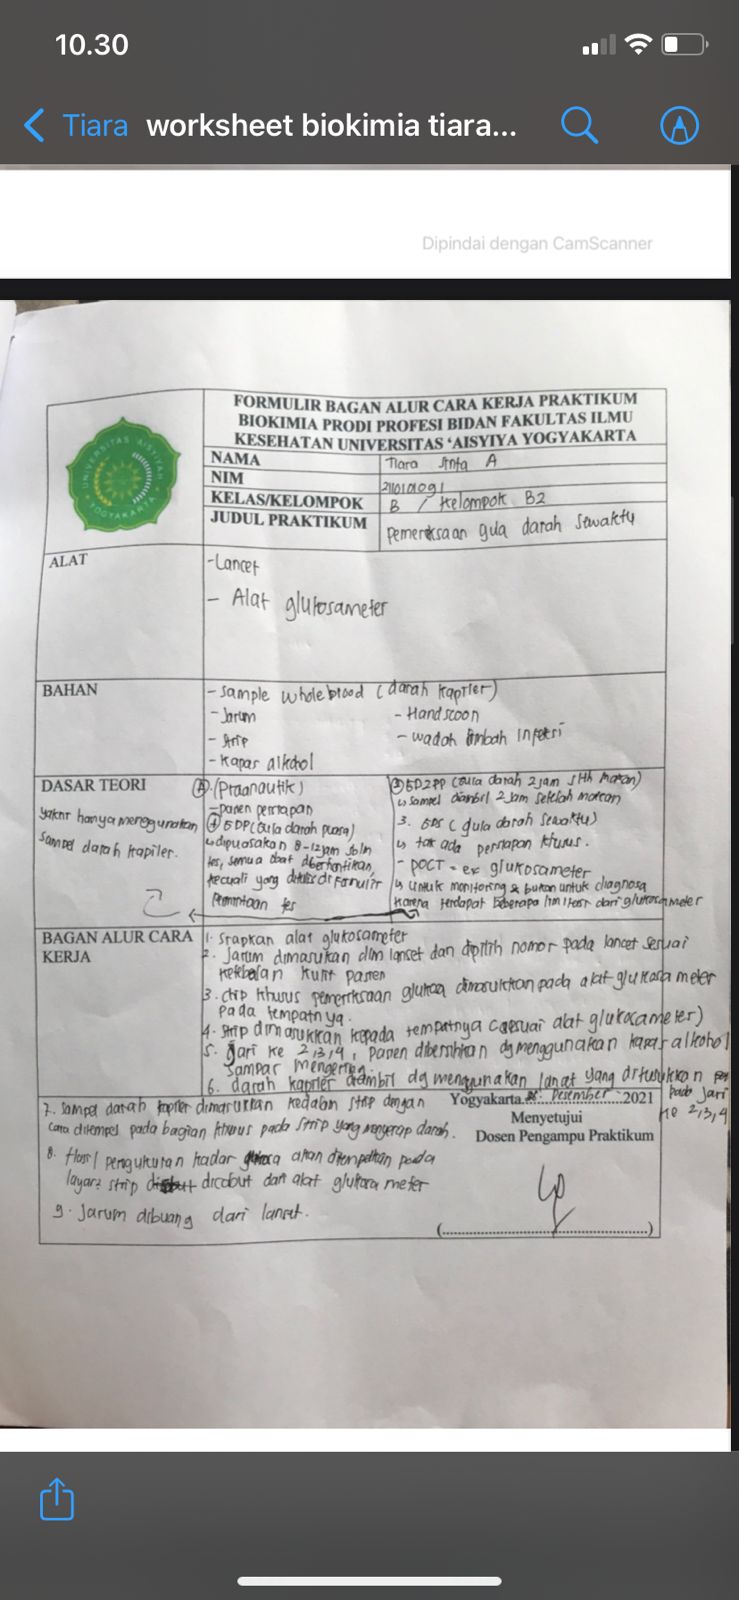 10.30
Tiara worksheet biokimia tiara...
Dipindai dengan CamScanner
FORMULIR BAGAN ALUR CARA KERJA PRAKTIKUM
BIOKIMIA PRODI PROFESI BIDAN FAKULTAS ILMU
KESEHATAN UNIVERSITAS ‘AISYIYA YOGYAKARTA
UNIVERSITAS 'AISYIYAH
YOGYAKARTA
NAMA Tiara Sinta A
NIM 2110101091
KELAS/KELOMPOK B / Kelompok B2
JUDUL PRAKTIKUM Pemeriksaan gula darah sewaktu
ALAT
- Lancet
- Alat glukosameter
BAHAN
- Sample whole blood (darah kapiler)
- Jarum
- Strip
- Kapas alkohol
- Handscoon
- wadah limbah infeksi
DASAR TEORI
yaitu hanya menggunakan
sampel darah kapiler.
(Praanalitik)
- pasien persiapan
① GDP (Gula darah puasa)
↳ dipuasakan 8-12 jam sblm
tes, semua obat dihentikan,
kecuali yang ditulis di formulir
Permintaan tes
② GD2PP (Gula darah 2 jam stlh makan)
↳ sampel diambil 2 jam setelah makan
3. GDS (gula darah sewaktu)
↳ tak ada persiapan khusus.
- POCT = ex glukosameter
↳ untuk monitoring & bukan untuk diagnosa
karena terdapat beberapa limitasi dari glukosameter
BAGAN ALUR CARA
KERJA
1. Siapkan alat glukosameter
2. Jarum dimasukan dlm lanset dan dipilih nomor pada lancet sesuai
ketebalan kulit pasien
3. strip khusus pemeriksaan glukosa dimasukkan pada alat glukosa meter
pada tempatnya.
4. strip dimasukkan kepada tempatnya (sesuai alat glukosameter)
5. Jari ke 2,3,4, pasien dibersihkan dg menggunakan kapas alkohol
sampai mengering.
6. darah kapiler diambil dg menggunakan lanset yang ditusukkan
pada jari
ke 2,3,4
7. sampel darah kapiler dimasukkan kedalam strip dengan
cara ditempel pada bagian khusus pada strip yang menyerap darah.
8. Hasil pengukuran kadar glukosa akan ditampilkan pada
layar. strip dicabut dari alat glukosa meter
9. Jarum dibuang dari lanset.
Yogyakarta, Desember 2021
Menyetujui
Dosen Pengampu Praktikum
(..............................................)